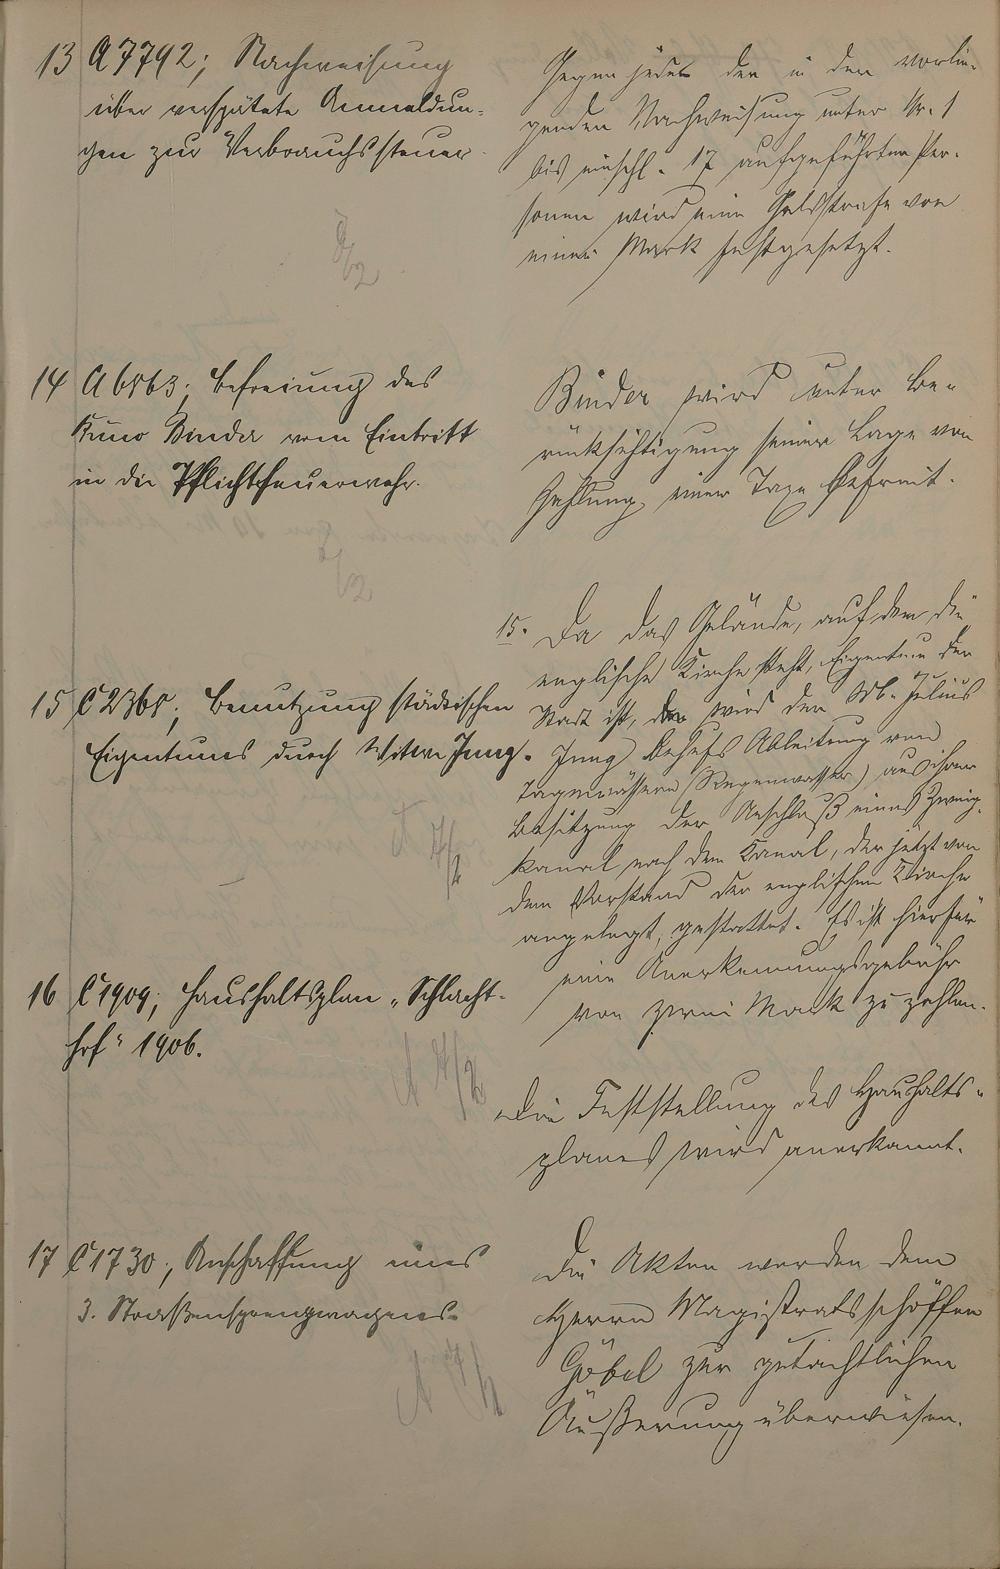 13 A 7792; Nachweisung
über verspätete Anmeldun-
gen zur Verbrauchssteuer.
Gegen jede der in der vorlie-
genden Nachweisung unter Nr. 1
bis einschl. 17 aufgeführten Per-
sonen wird eine Geldstrafe von
einer Mark festgesetzt.
14 A 6863; Befreiung des
Kuno Binder vom Eintritt
in die Pflichtfeuerwehr.
Binder wird unter Be-
rücksichtigung seiner Lage von
Zahlung einer Taxe befreit.
15 C 2368; Benutzung städtischen
Eigentumes durch Witwe Jung.
15. Da das Gelände, auf dem die
englische Kirche steht, Eigentum der
Stadt ist, wird der Wb. Julius
Jung behufs Ableitung von
Tagewässern (Regenwasser) aus ihrer
Besitzung der Anschluß eines Zweig-
kanal nach dem Kanal, der jetzt von
dem Vorstand der englischen Kirche
angelegt, gestattet. Es ist hierfür
eine Anerkennungsgebühr
von zwei Mark zu zahlen.
16 C 1909; Haushaltsplan „Schlacht-
hof“ 1906.
Die Feststellung des Haushalts-
planes wird anerkannt.
17 C 1730; Anschaffung eines
3. Straßensprengwagens.
Die Akten werden dem
Herrn Magistratsschöffen
Göbel zur gutachtlichen
Äußerung überwiesen.